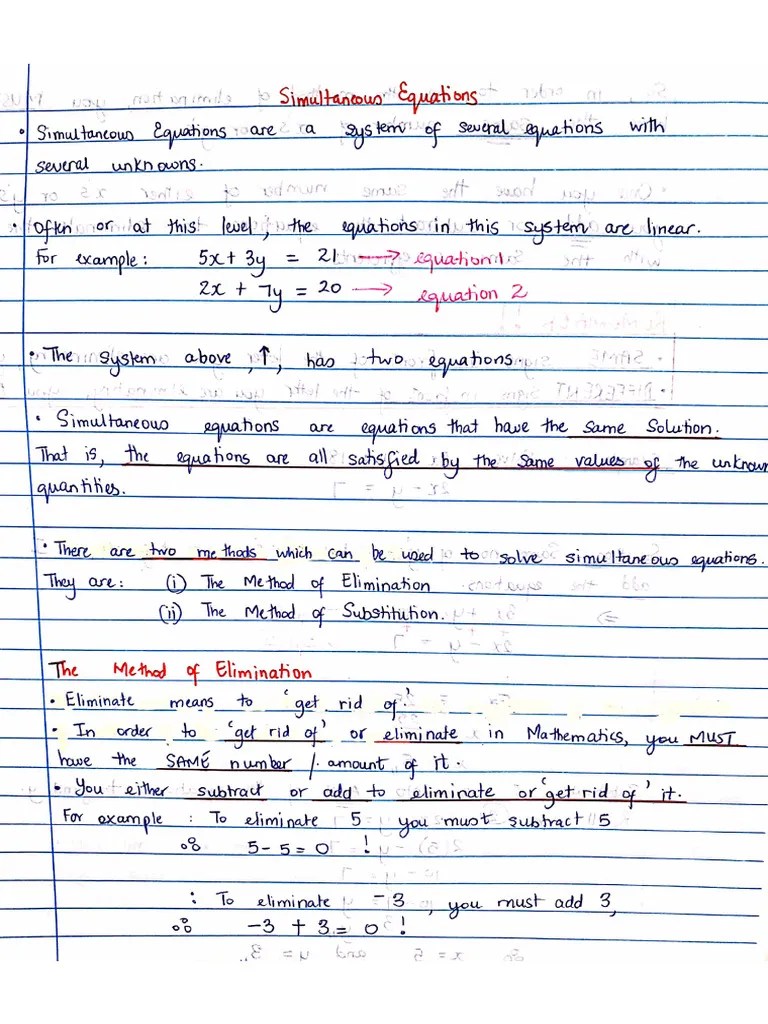 Simultaneous Equations
• Simultaneous Equations are a system of several equations with
several unknowns.
• Often or at this level, the equations in this system are linear.
For example: 5x + 3y = 21 → equation 1
2x + 7y = 20 → equation 2
• The system above, ↑, has two equations.
• Simultaneous equations are equations that have the same solution.
That is, the equations are all satisfied by the same values of the unknown
quantities.
• There are two methods which can be used to solve simultaneous equations.
They are: (i) The Method of Elimination
(ii) The Method of Substitution.
The Method of Elimination
• Eliminate means to 'get rid of'
• In order to 'get rid of' or eliminate in Mathematics, you MUST
have the SAME number / amount of it.
• You either subtract or add to eliminate or 'get rid of' it.
For example : To eliminate 5 you must subtract 5
∴ 5 - 5 = 0 !
: To eliminate -3, you must add 3,
∴ -3 + 3 = 0 !